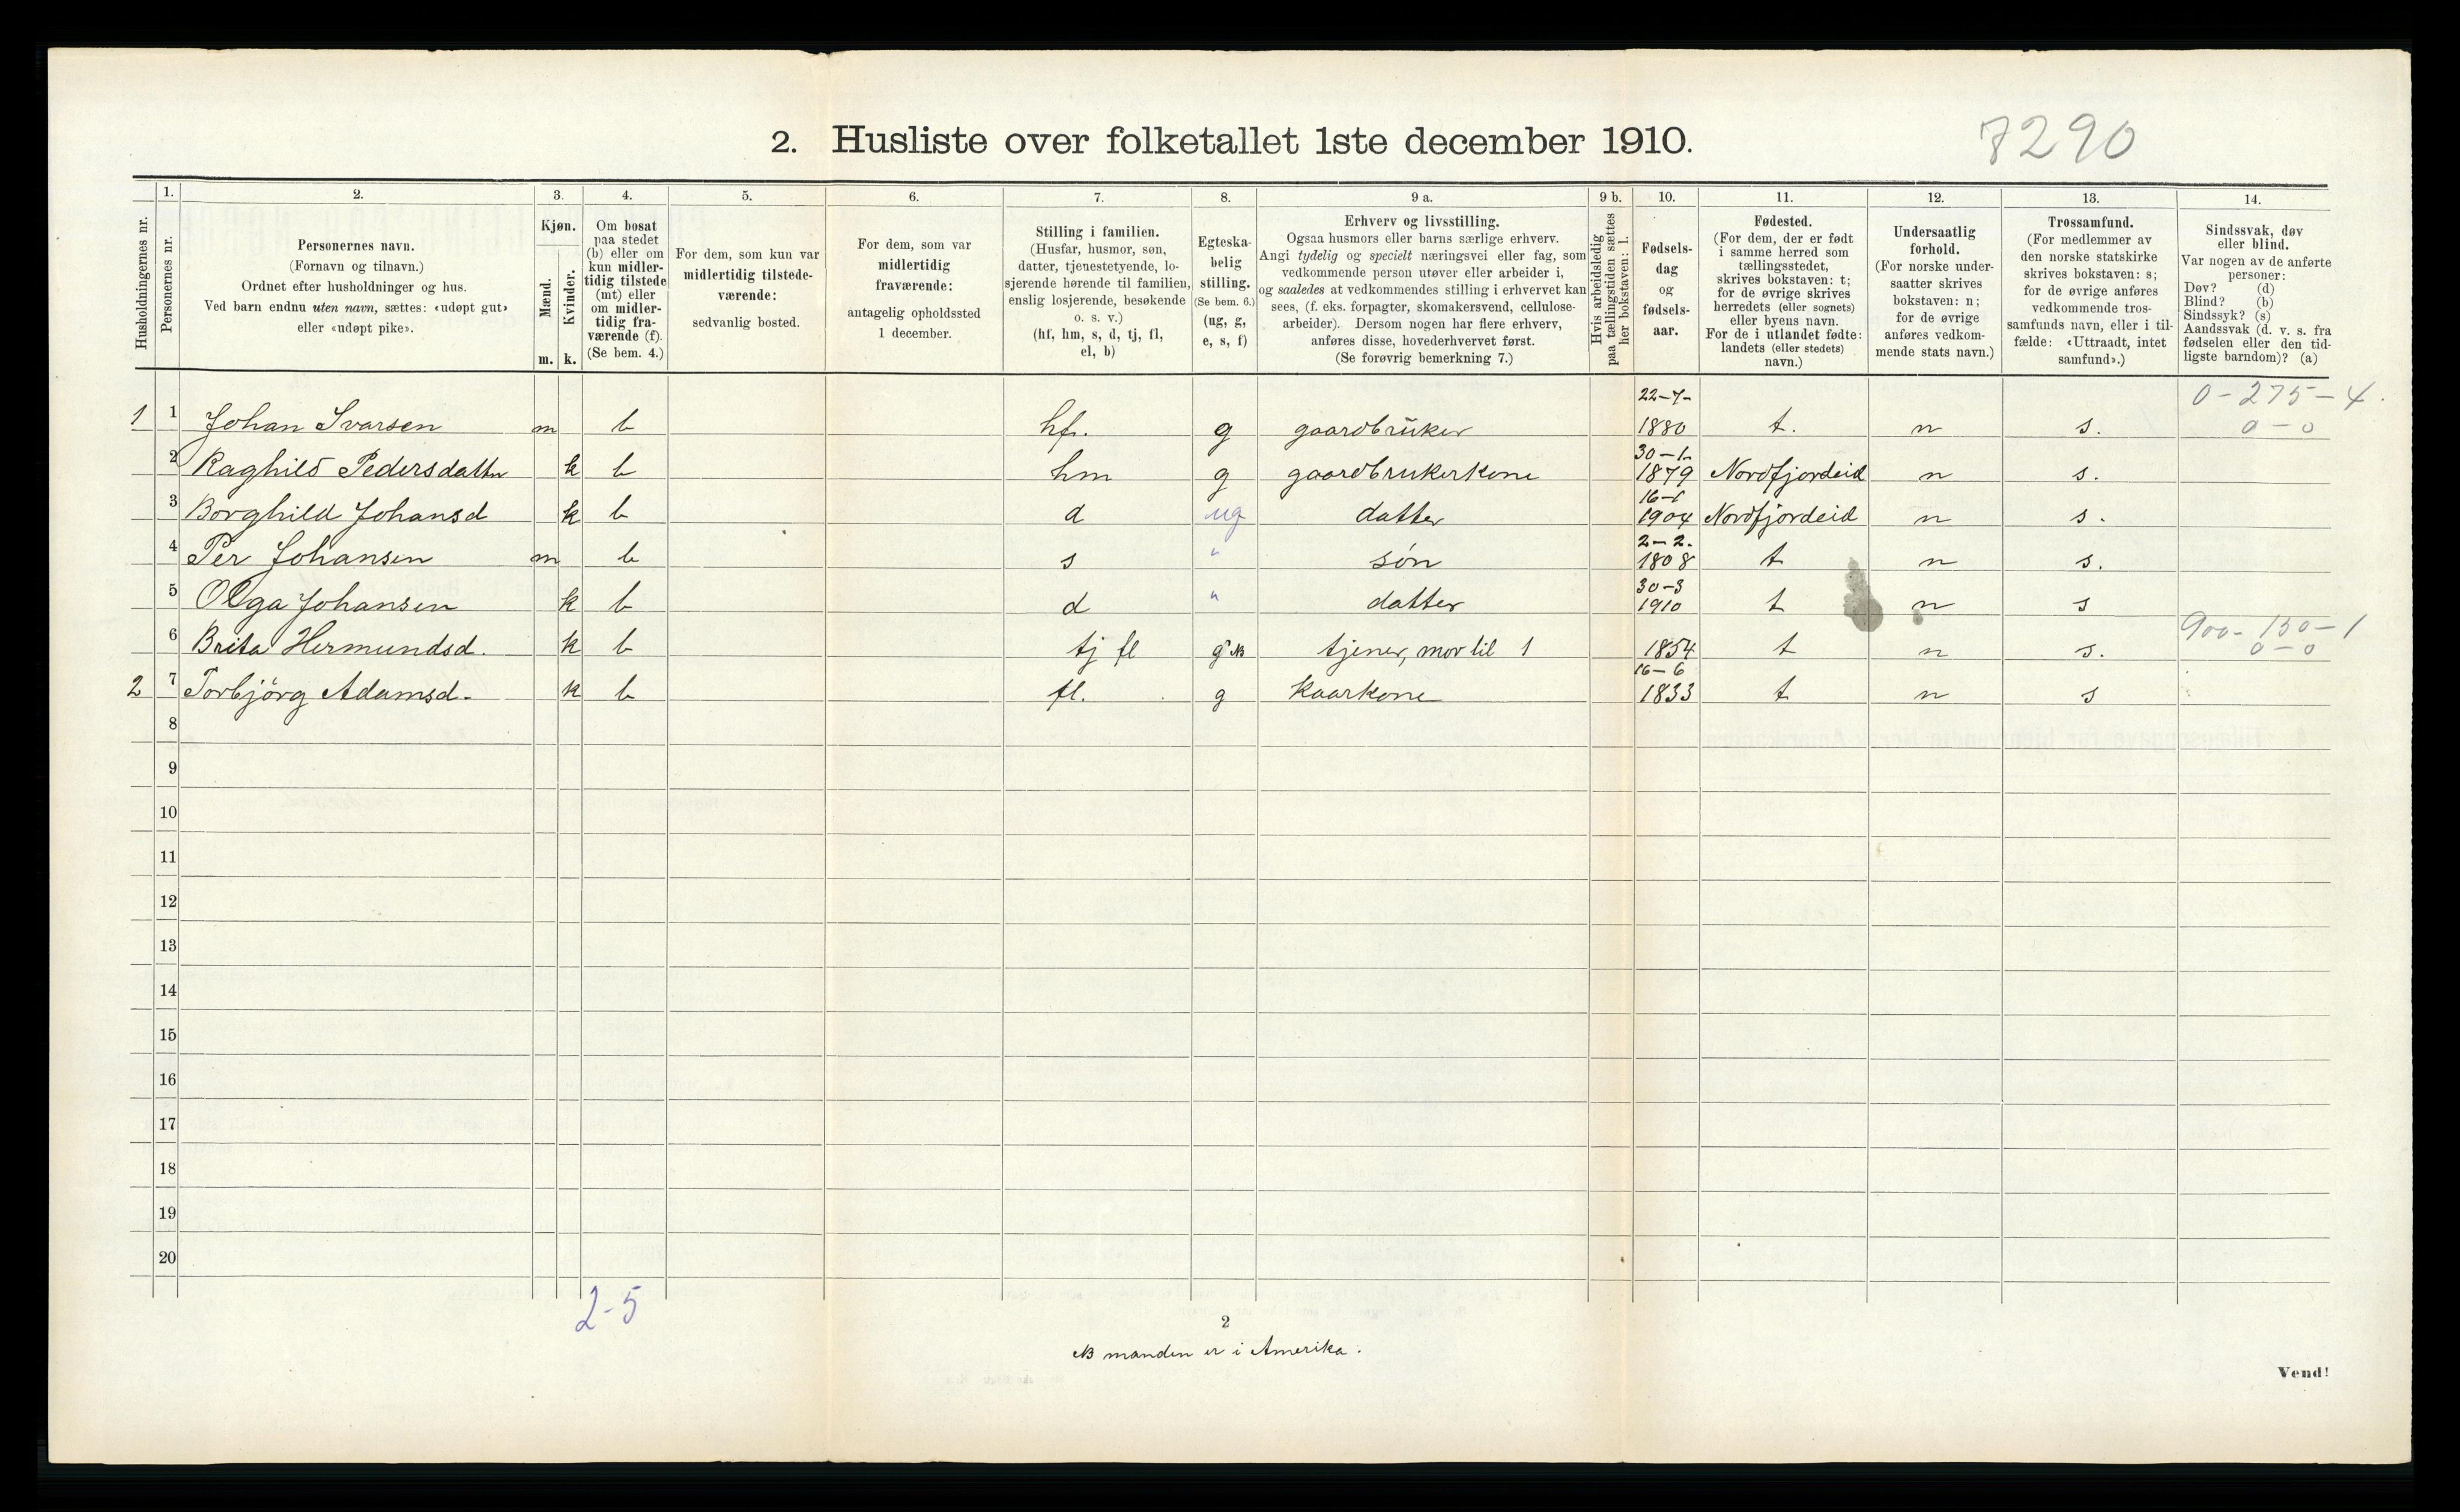 2. Husliste over folketallet 1ste december 1910.
7290
Husholdningernes nr.
1.
Personernes nr.
2.
Personernes navn.
(Fornavn og tilnavn.)
Ordnet efter husholdninger og hus.
Ved barn endnu uten navn, sættes: «udøpt gut»
eller «udøpt pike».
3.
Kjøn.
Mænd.
Kvinder.
m. k.
4.
Om bosat
paa stedet
(b) eller om
kun midler-
tidig tilstede
(mt) eller
om midler-
tidig fra-
værende (f).
(Se bem. 4.)
5.
For dem, som kun var
midlertidig tilstede-
værende:
sedvanlig bosted.
6.
For dem, som var
midlertidig
fraværende:
antagelig opholdssted
1 december.
7.
Stilling i familien.
(Husfar, husmor, søn,
datter, tjenestetyende, lo-
sjerende hørende til familien,
enslig losjerende, besøkende
o. s. v.)
(hf, hm, s, d, tj, fl,
el, b)
8.
Egteska-
belig
stilling.
(Se bem. 6.)
(ug, g,
e, s, f)
9 a.
Erhverv og livsstilling.
Ogsaa husmors eller barns særlige erhverv.
Angi tydelig og specielt næringsvei eller fag, som
vedkommende person utøver eller arbeider i,
og saaledes at vedkommendes stilling i erhvervet kan
sees, (f. eks. forpagter, skomakersvend, cellulose-
arbeider). Dersom nogen har flere erhverv,
anføres disse, hovederhvervet først.
(Se forøvrig bemerkning 7.)
9 b.
Hvis arbeidsledig
paa tællingstiden sættes
her bokstaven: l.
10.
Fødsels-
dag
og
fødsels-
aar.
11.
Fødested.
(For dem, der er født
i samme herred som
tællingsstedet,
skrives bokstaven: t;
for de øvrige skrives
herredets (eller sognets)
eller byens navn.
For de i utlandet fødte:
landets (eller stedets)
navn.)
12.
Undersaatlig
forhold.
(For norske under-
saatter skrives
bokstaven: n;
for de øvrige
anføres vedkom-
mende stats navn.)
13.
Trossamfund.
(For medlemmer av
den norske statskirke
skrives bokstaven: s;
for de øvrige anføres
vedkommende tros-
samfunds navn, eller i til-
fælde: «Uttraadt, intet
samfund».)
14.
Sindssvak, døv
eller blind.
Var nogen av de anførte
personer:
Døv? (d)
Blind? (b)
Sindssyk? (s)
Aandssvak (d. v. s. fra
fødselen eller den tid-
ligste barndom)? (a)
22-7- 0-275-4.
1 1 Johan Ivarsen m b hf. g gaardbruker 1880 t. n s. 0-0
30-1-
2 Raghild Pedersdatter k b hm g gaardbrukerkone 1879 Nordfjordeid n s.
16-1
3 Borghild Johansd k b d ug datter 1904 Nordfjordeid n s.
2-2.
4 Per Johansen m b s " søn 1808 t n s.
30-3
5 Olga Johansen k b d " datter 1910 t n s
900-150-1
6 Brita Hermundsd. k b tj fl g NB tjener, mor til 1 1854 t n s. 0-0
16-6
2 7 Torbjörg Adamsd. k b fl. g kaarkone 1833 t n s
8
9
10
11
12
13
14
15
16
17
18
19
20
2-5
2
NB manden er i Amerika.
Vend!